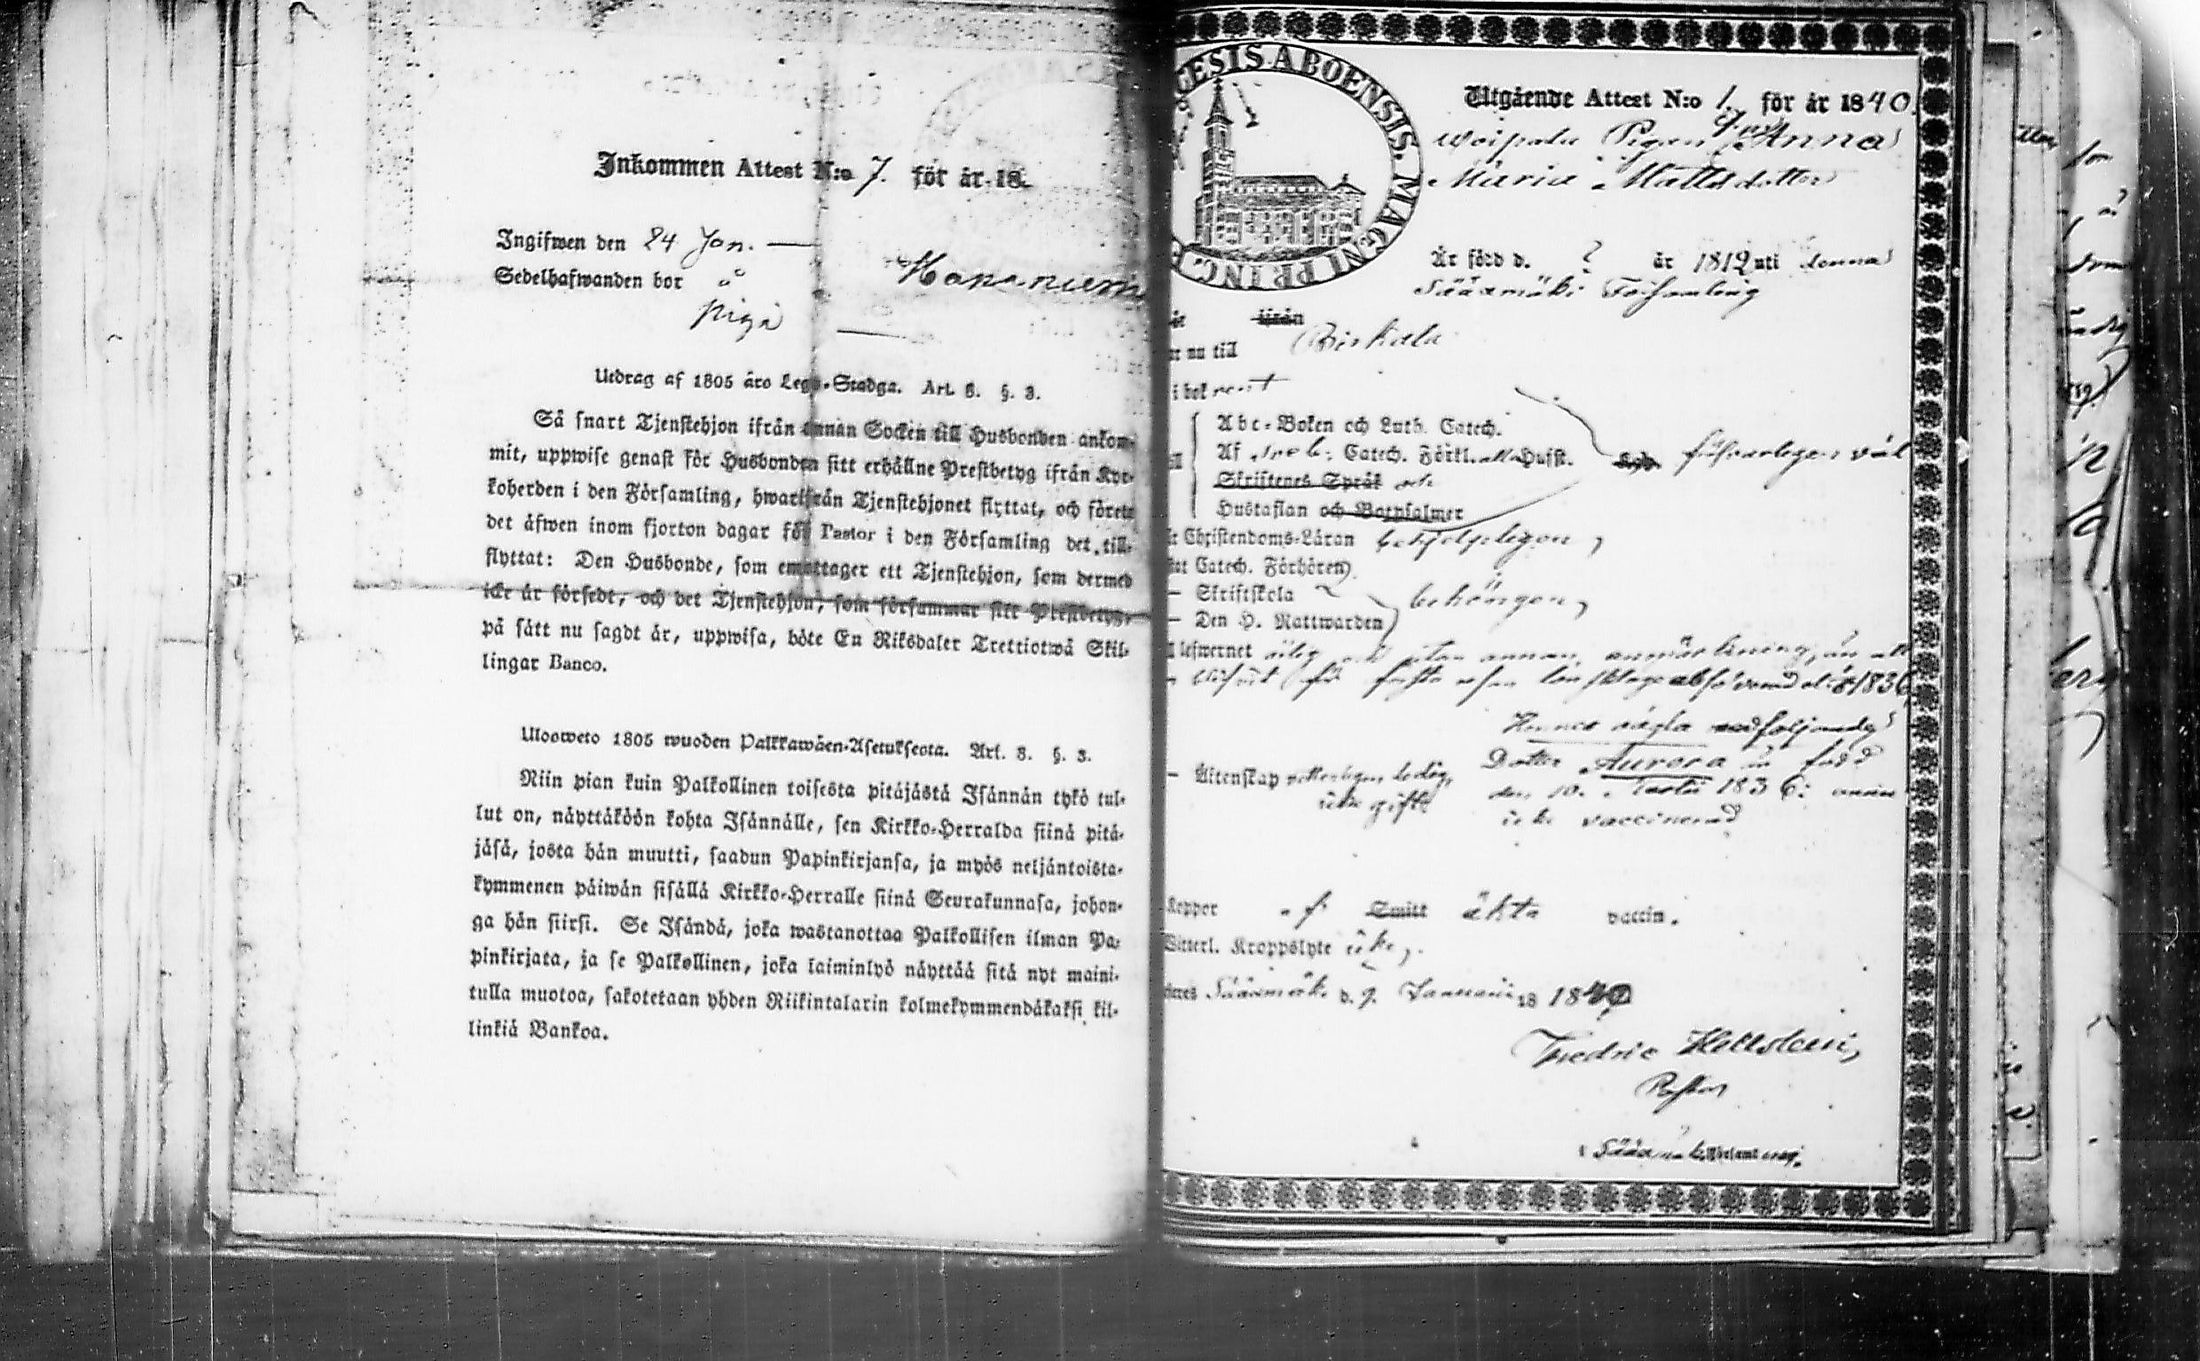 Inkommen Attest N:o 7. för år 18
Ingifwen den 24 Jan. —
Sedelhafwanden bor å Haraniemi
piga —
Utdrag af 1805 års Lego-Stadga. Art. 8. §. 3.
Så snart Tjenstehjon ifrån annan Socken till Husbonden ankom-
mit, uppwise genast för Husbonden sitt erhållne Prestbetyg ifrån Kyr-
koherden i den Församling, hwarifrån Tjenstehjonet flyttat, och förete
det äfwen inom fjorton dagar för Pastor i den Församling det till-
flyttat: Den Husbonde, som emottager ett Tjenstehjon, som dermed
icke är försedt, och det Tjenstehjon, som försummar sitt Prestbetyg,
på sätt nu sagdt är, uppwisa, böte En Riksdaler Trettiotwå Skil-
lingar Banco.
Ulosweto 1805 wuoden Palkkawäen-Asetuksesta. Art. 8. §. 3.
Niin pian kuin Palkollinen toisesta pitäjästä Isännän tykö tul-
lut on, näyttäköön kohta Isännälle, sen Kirkko-Herralda siinä pitä-
jäsä, josta hän muutti, saadun Papinkirjansa, ja myös neljäntoista-
kymmenen päiwän sisällä Kirkko-Herralle siinä Seurakunnasa, johon-
ga hän siirsi. Se Isändä, joka wastanottaa Palkollisen ilman Pa-
pinkirjata, ja se Palkollinen, joka laiminlyö näyttää sitä nyt maini-
tulla muotoa, sakotetaan yhden Riikintalarin kolmekymmendäkaksi kil-
linkiä Bankoa.
CESIS ABOENSIS. MAGNI PRINC.
Utgående Attest N:o 1. för år 1840.
Pigan Anna
Maria Mattsdotter
Är född d. ? år 1812 uti denna
Sääxmäki Församling
ifrån
nu till Birkala
i bok rent
Abc-Boken och Luth. Catech.
Af Sveb: Catech. Förkl. Hufst.
Skriftenes Språk och
Hustaflan och Botpsalmer
försvarligen väl
Christendoms-Läran behjelpeligen,
Catech. Förhören
— Skriftskola
— Den H. Nattwarden
behörigen,
lefwernet utan annan anmärkning, än att
för första resan absolverad 1836
Hennes oägta medföljande
Dotter Aurora är född
den 10. 1836: annu
icke vaccinerad
— Äktenskap ledig,
icke gift
Koppor af Smitt äkta vaccin.
Witterl. Kroppslyte icke,.
Sääxmäki d. 9. Januarii 18 1840
Fredric Hellsten,
Pastor
i Sääxmäki Församling.